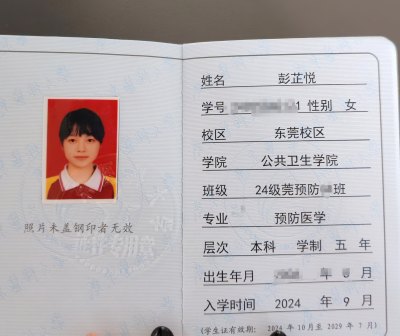 照片未盖钢印者无效
姓名 彭芷悦
学号 1 性别 女
校区 东莞校区
学院 公共卫生学院
班级 24级莞预防 班
专业 预防医学
层次 本科 学制 五 年
出生年月 年 月
入学时间 2024 年 9 月
(学生证有效期: 2024 年 10 月至 2029 年 7 月)